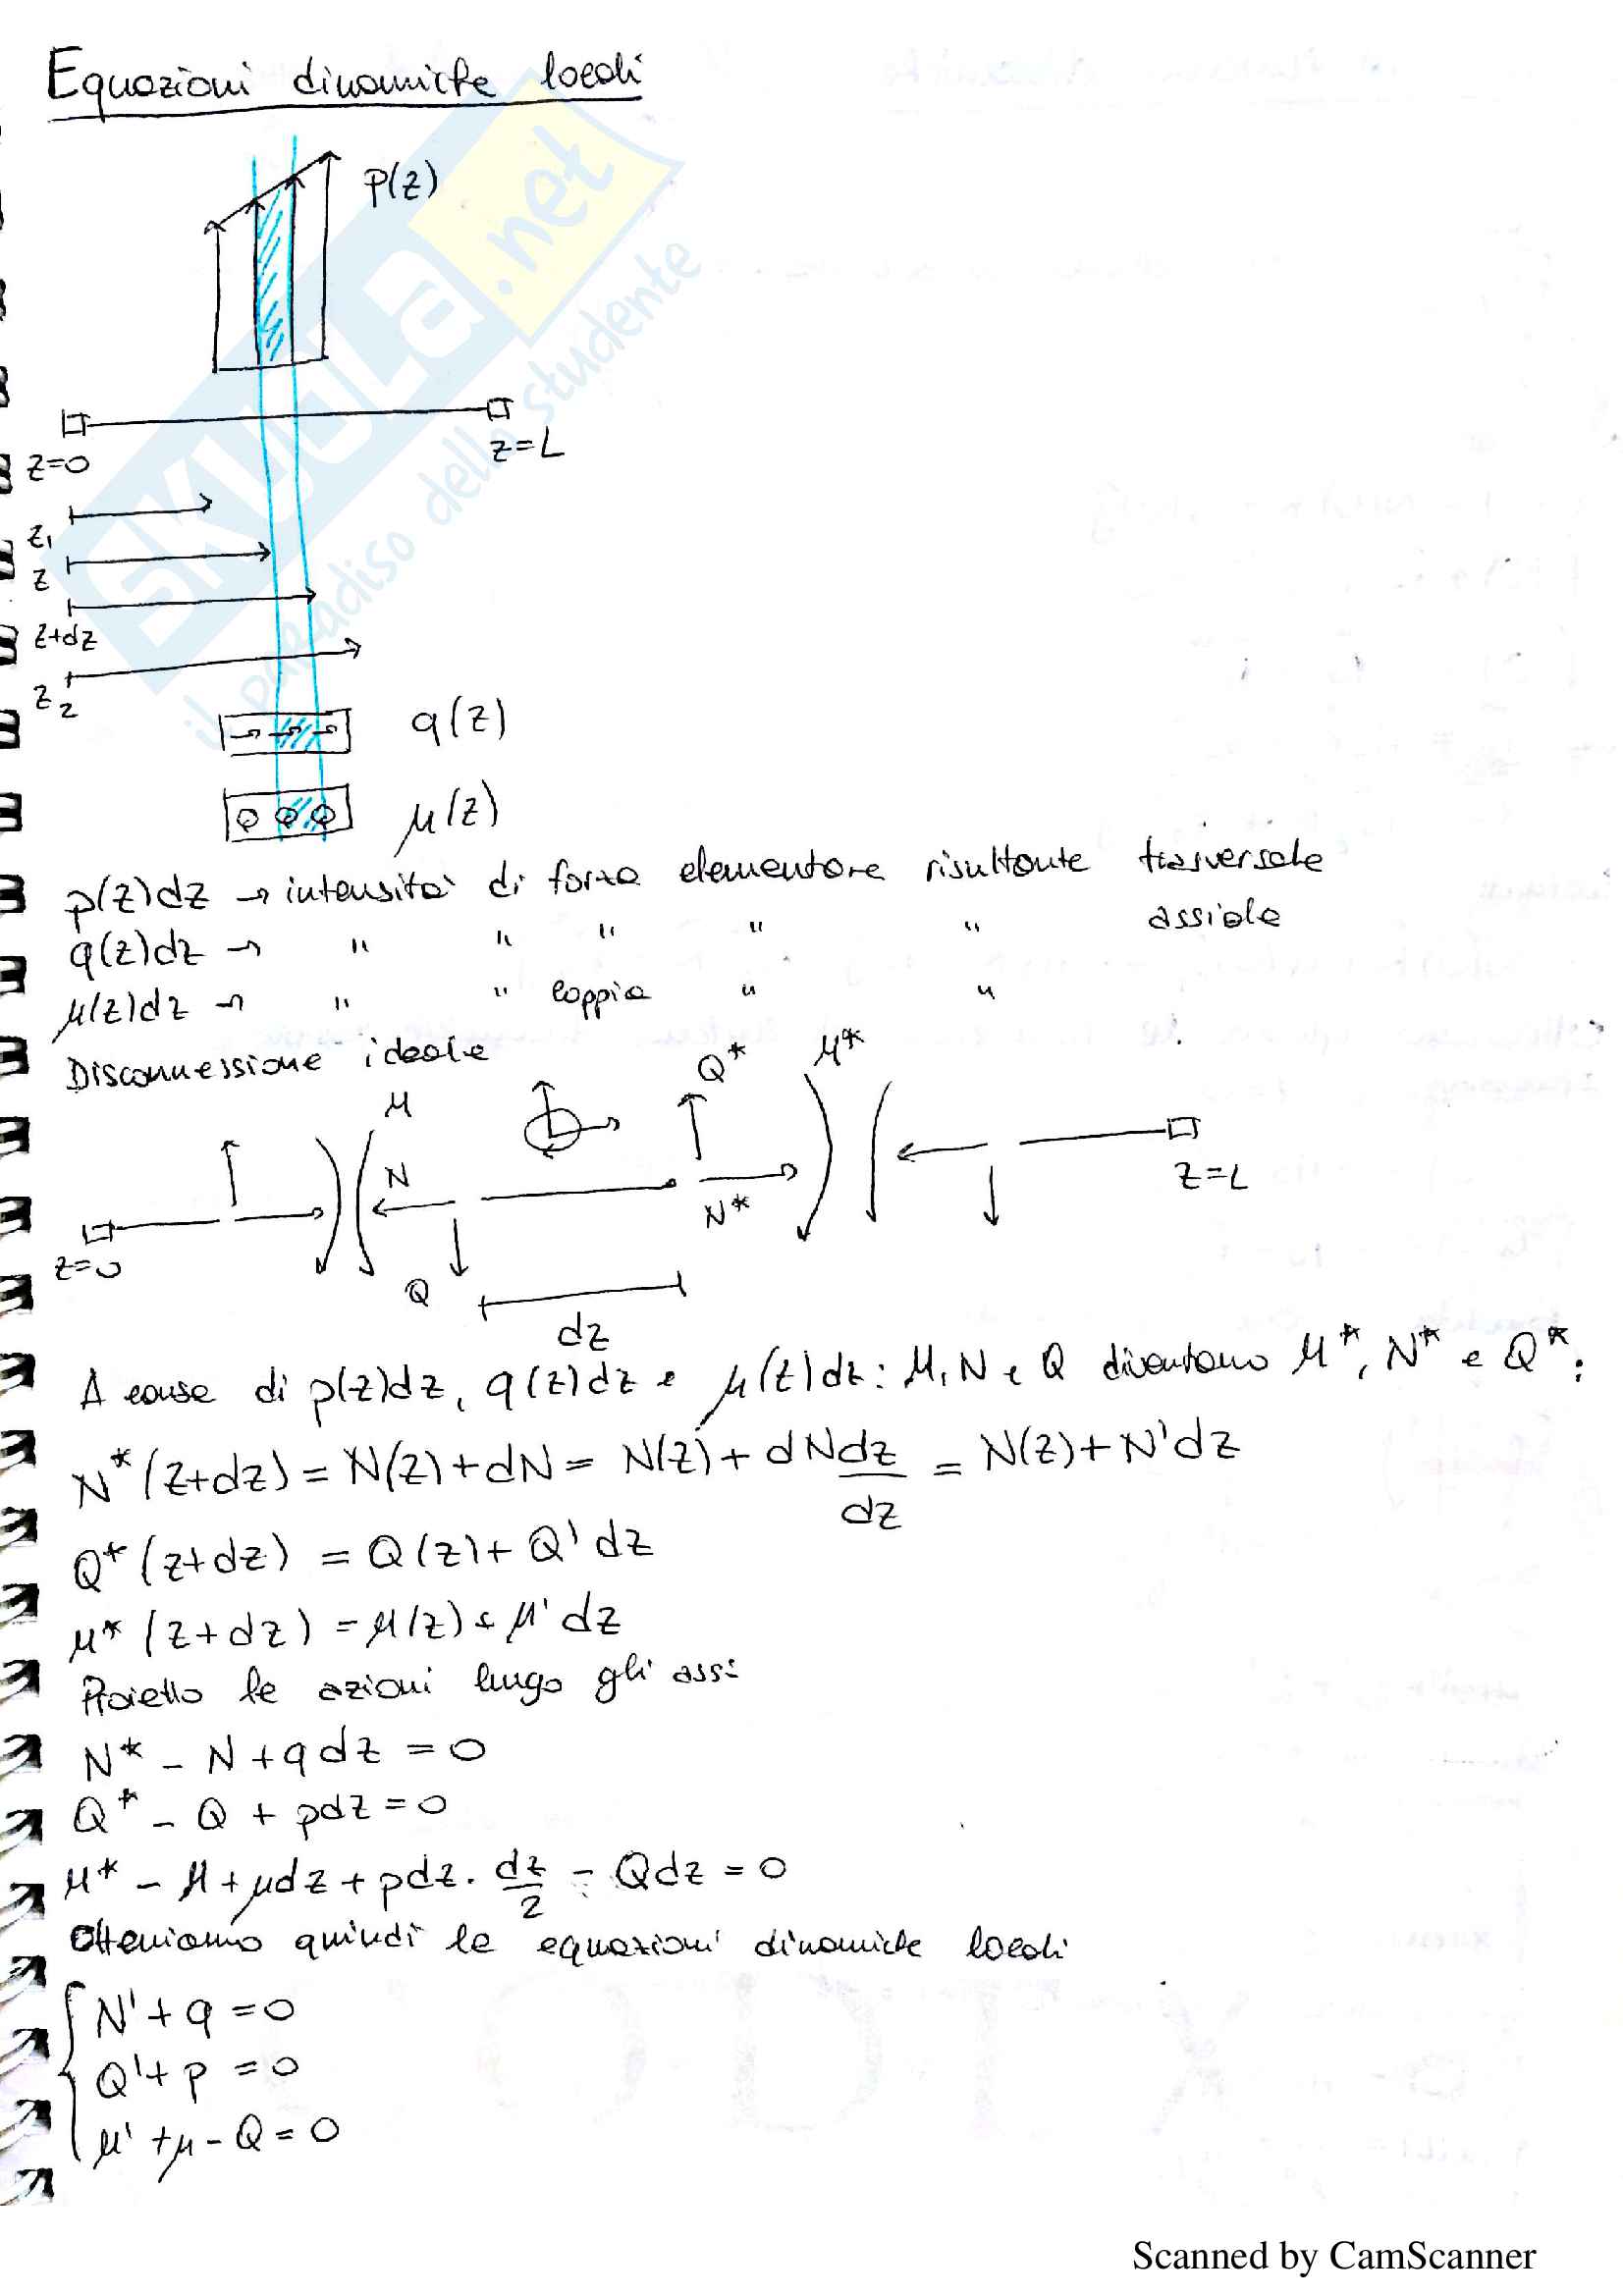 Equazioni dinamiche locali
p(z)
z=0
z=L
z₁
z
z+dz
z₂
q(z)
μ(z)
p(z)dz → intensità di forza elementare risultante trasversale
q(z)dz → " " " " " assiale
μ(z)dz → " " coppia " "
Disconnessione ideale
M
Q*
M*
N
N*
z=0
Q
z=L
dz
A causa di p(z)dz, q(z)dz e μ(z)dz: M, N e Q diventano M*, N* e Q*:
N*(z+dz) = N(z)+dN = N(z)+dN dz/dz = N(z)+N'dz
Q*(z+dz) = Q(z)+Q'dz
M*(z+dz) = M(z)+M'dz
Proietto le azioni lungo gli assi
N* - N + qdz = 0
Q* - Q + pdz = 0
M* - M + μdz + pdz · dz/2 - Qdz = 0
Otteniamo quindi le equazioni dinamiche locali
N' + q = 0
Q' + p = 0
M' + μ - Q = 0
SKUOLA.net
il paradiso dello studente
Scanned by CamScanner